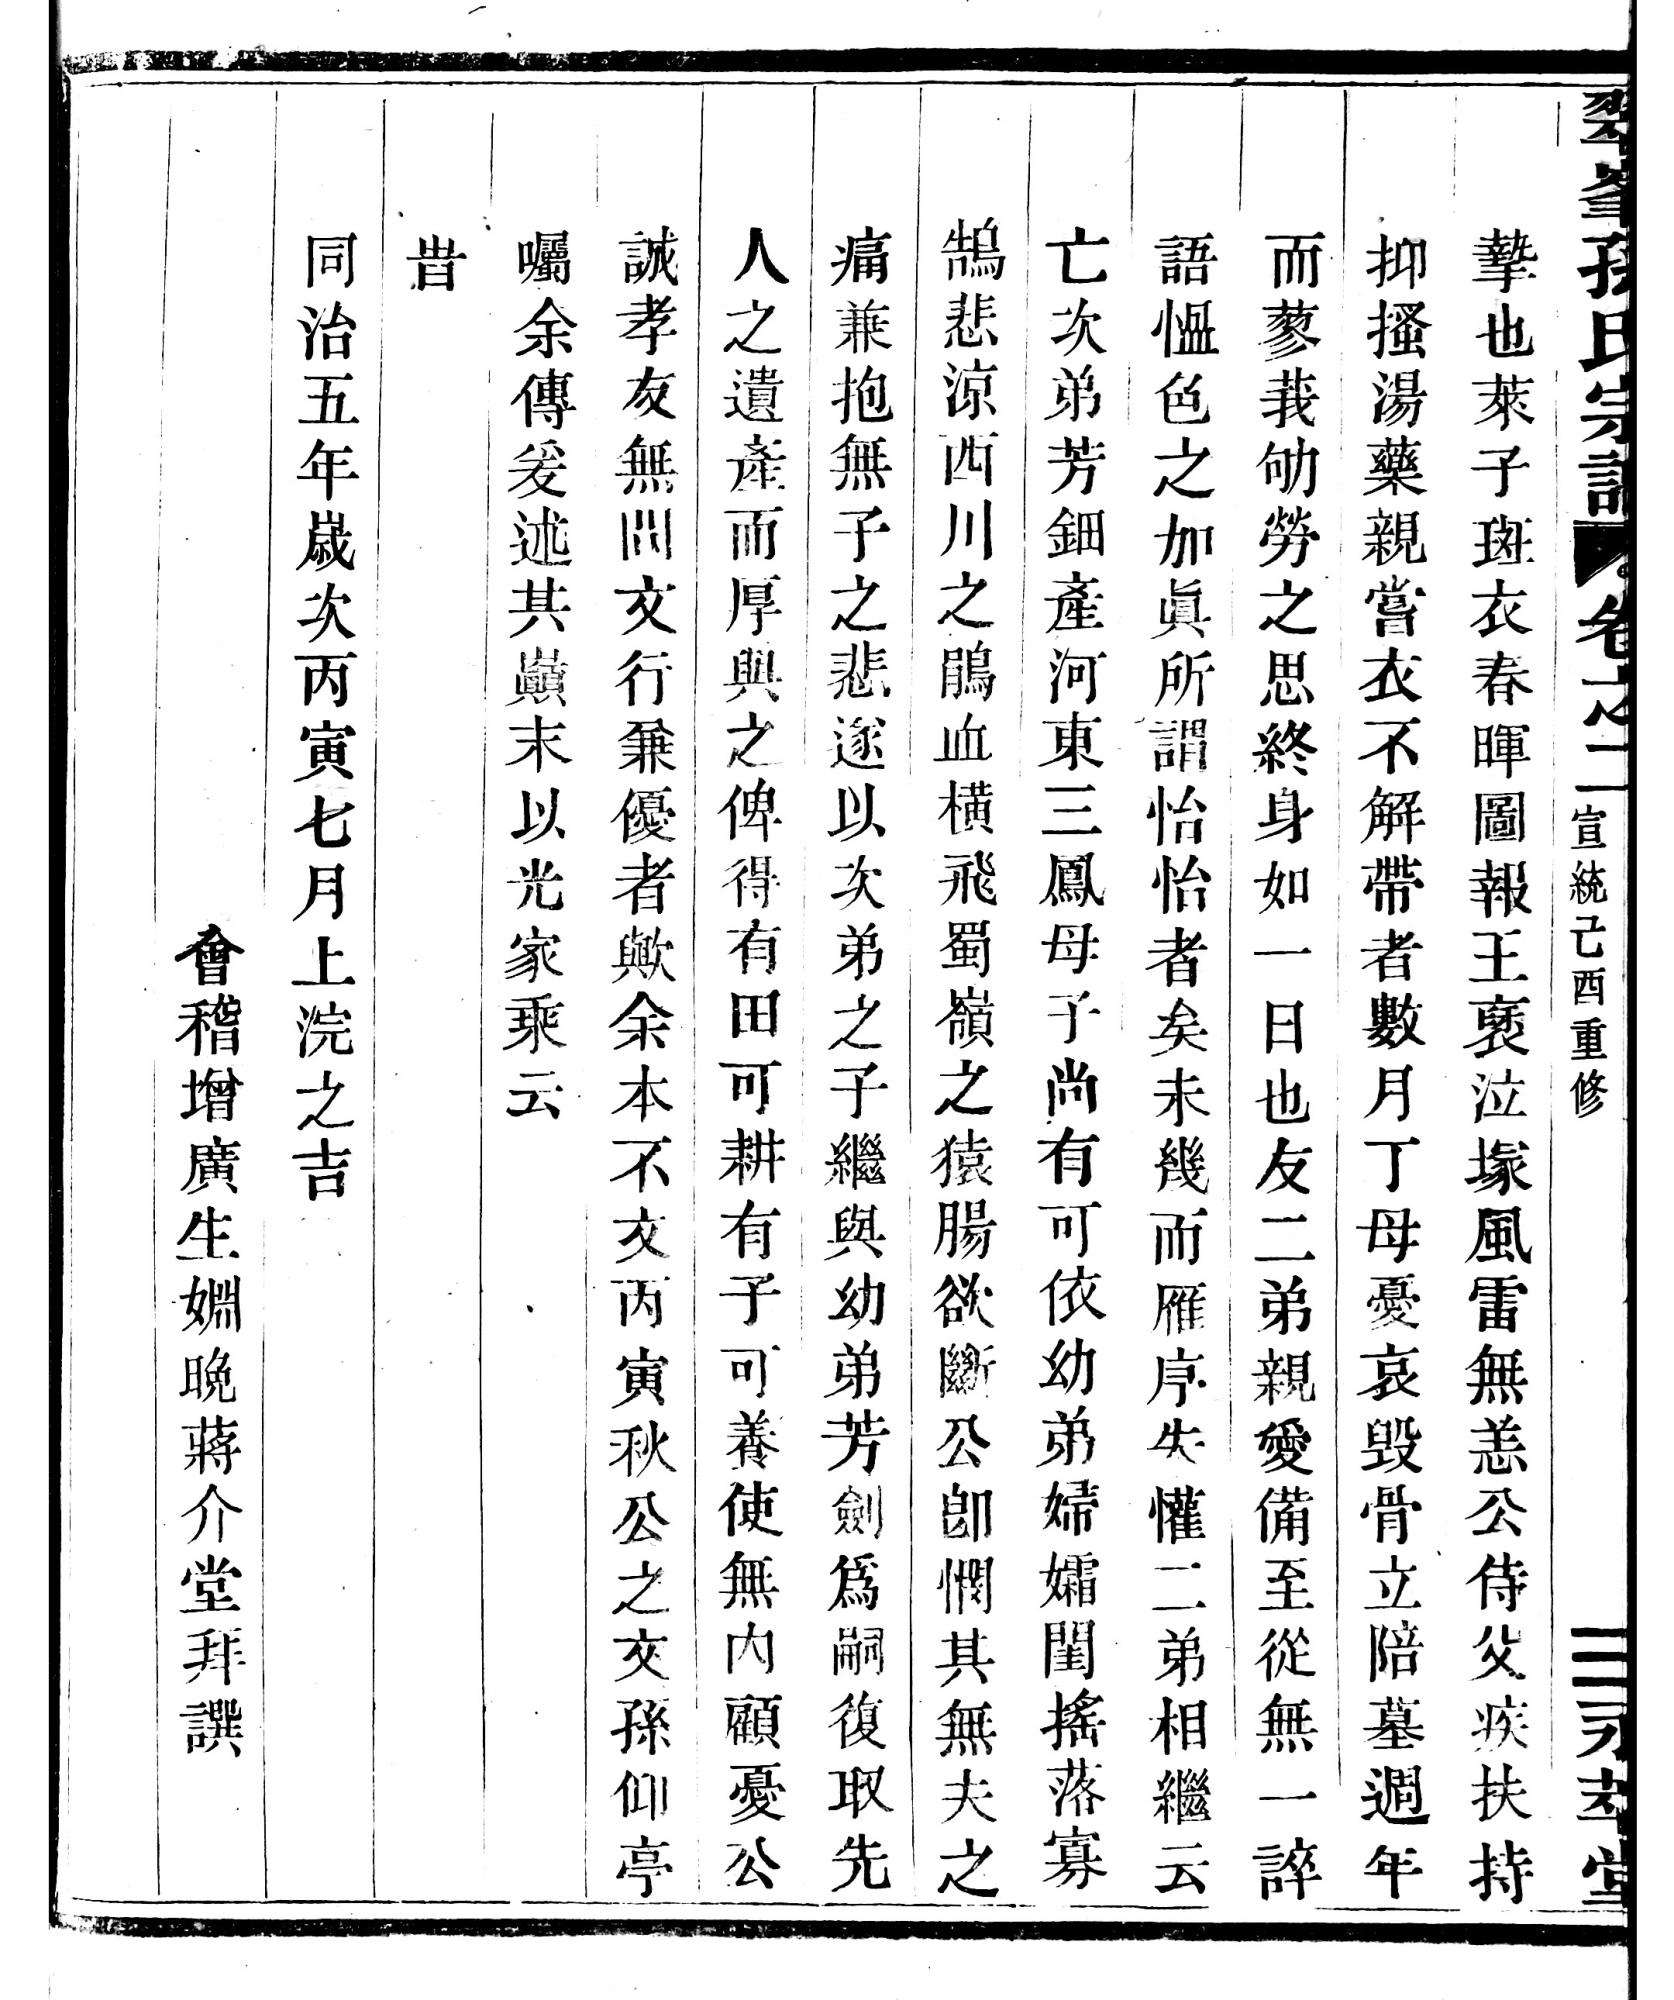 翠峯孫氏宗譜 卷之二 宣統己酉重修 三 永萃堂
摯也萊子斑衣春暉圖報王裒泣塚風雷無恙公侍父疾扶持
抑搔湯藥親嘗衣不解帶者數月丁母憂哀毀骨立陪墓週年
而蓼莪劬勞之思終身如一日也友二弟親愛備至從無一誶
語慍色之加眞所謂怡怡者矣未幾而雁序失懽二弟相繼云
亡次弟芳鈿產河東三鳳母子尚有可依幼弟婦孀閨搖落寡
鵠悲涼西川之鵑血橫飛蜀嶺之猿腸欲斷公卽憫其無夫之
痛兼抱無子之悲遂以次弟之子繼與幼弟芳劍爲嗣復取先
人之遺產而厚與之俾得有田可耕有子可養使無內顧憂公
誠孝友無間文行兼優者歟余本不文丙寅秋公之交孫仰亭
囑余傳爰述其巔末以光家乘云
旹
同治五年歲次丙寅七月上浣之吉
會稽增廣生姻晚蔣介堂拜譔